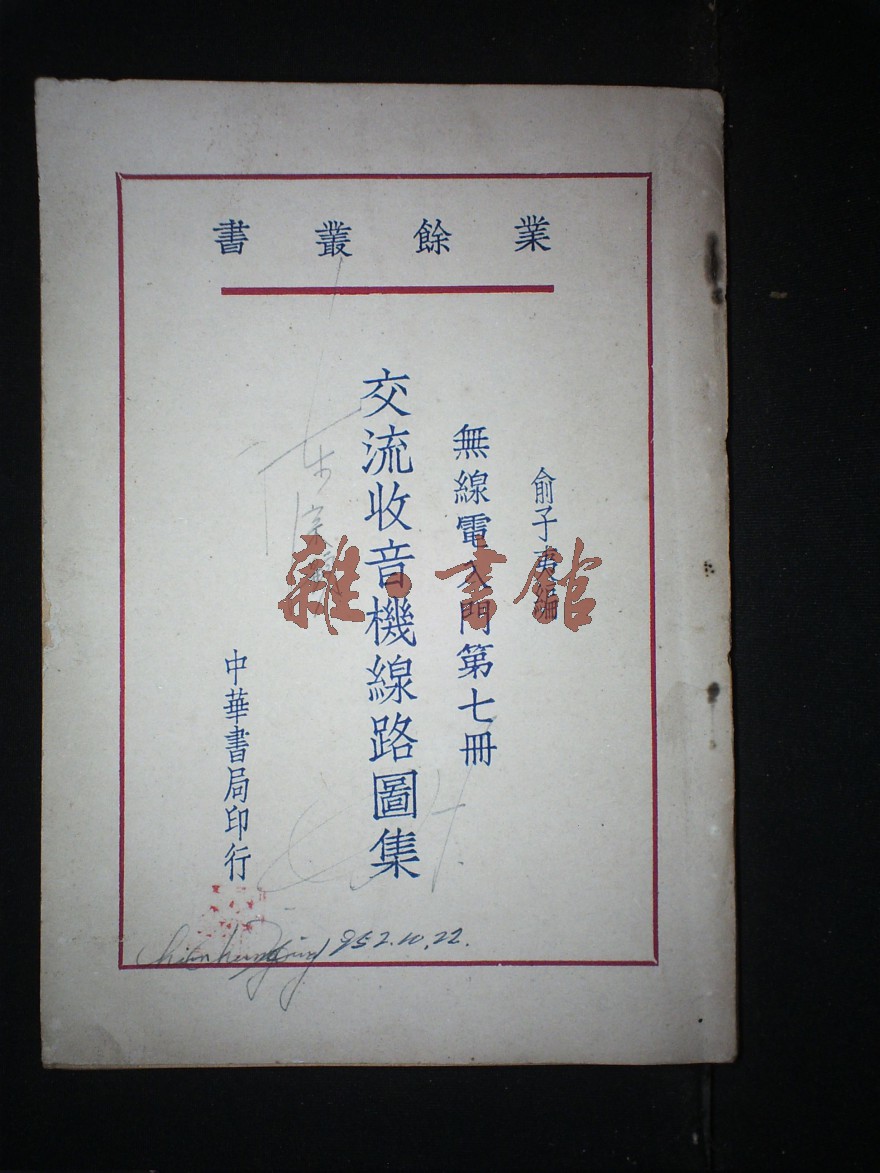 業餘叢書
俞子夷編
無線電入門第七冊
交流收音機線路圖集
中華書局印行
雜·書館
952.10.22.